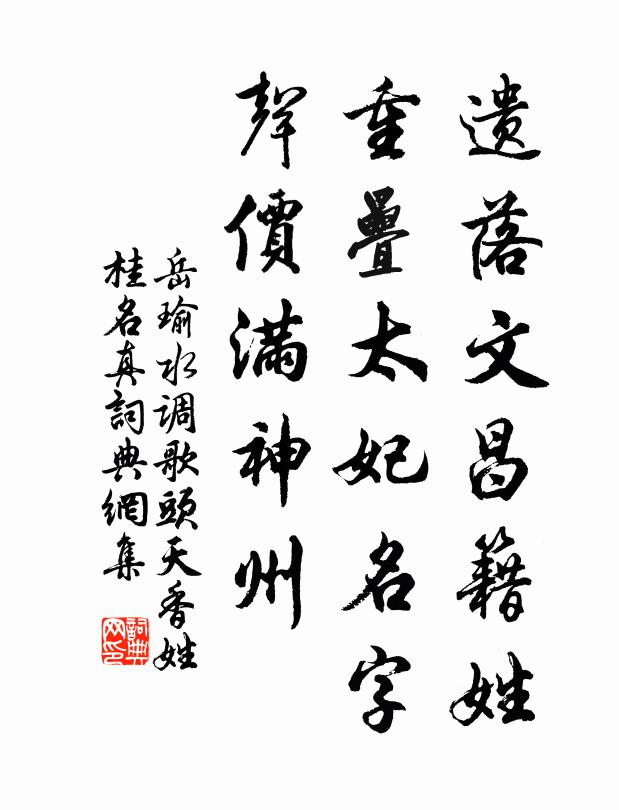 遗落文昌籍姓
重疊太妃名字
聲價滿神州
岳瑜水调歌頭天香姓
桂名真詞典網集
詞典
网印